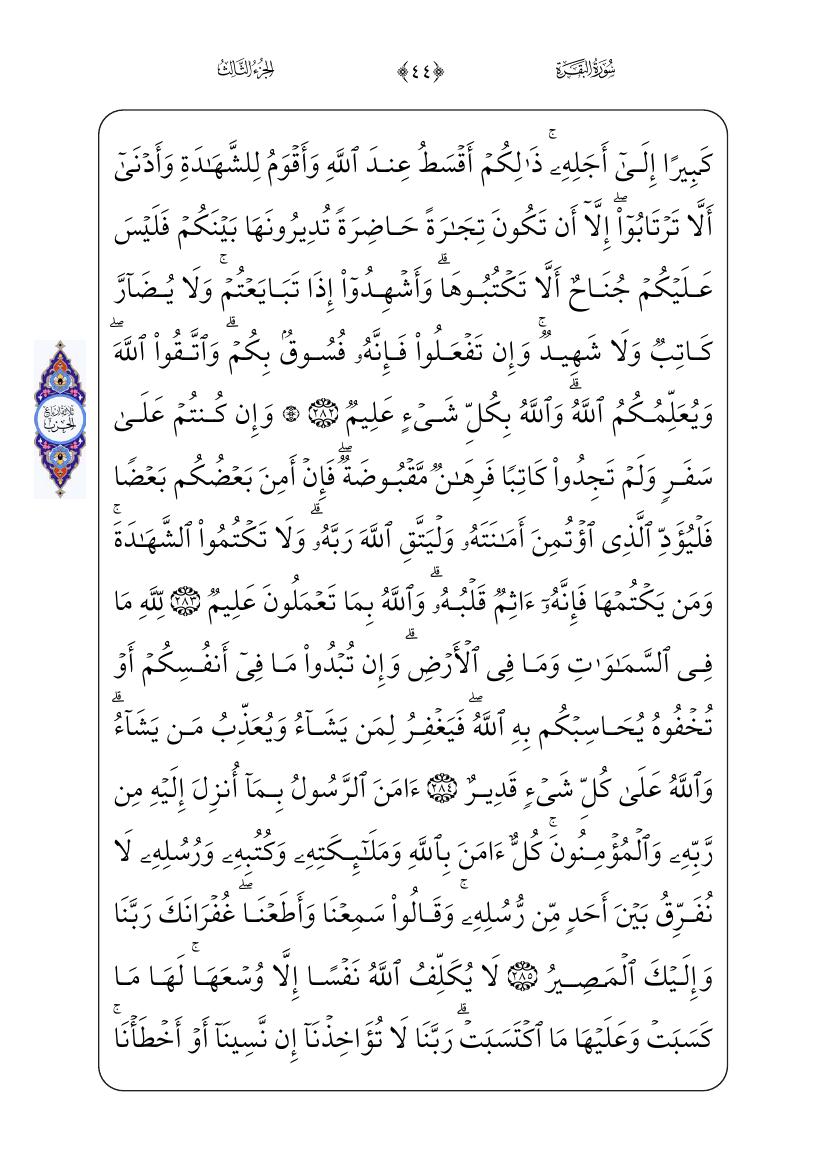 سُورَةُ البَقَرَةِ ﴿٤٤﴾ الجُزءُ الثَّالِثُ
كَبِيرًا إِلَىٰٓ أَجَلِهِۦۚ ذَٰلِكُمۡ أَقۡسَطُ عِندَ ٱللَّهِ وَأَقۡوَمُ لِلشَّهَٰدَةِ وَأَدۡنَىٰٓ
أَلَّا تَرۡتَابُوٓاْۖ إِلَّآ أَن تَكُونَ تِجَٰرَةً حَاضِرَةٗ تُدِيرُونَهَا بَيۡنَكُمۡ فَلَيۡسَ
عَلَيۡكُمۡ جُنَاحٌ أَلَّا تَكۡتُبُوهَاۗ وَأَشۡهِدُوٓاْ إِذَا تَبَايَعۡتُمۡۚ وَلَا يُضَآرَّ
كَاتِبٞ وَلَا شَهِيدٞۚ وَإِن تَفۡعَلُواْ فَإِنَّهُۥ فُسُوقُۢ بِكُمۡۗ وَٱتَّقُواْ ٱللَّهَۖ
وَيُعَلِّمُكُمُ ٱللَّهُۗ وَٱللَّهُ بِكُلِّ شَيۡءٍ عَلِيمٞ ٢٨٢ ۞ وَإِن كُنتُمۡ عَلَىٰ
ثلاثة أرباع
الحزب
سَفَرٖ وَلَمۡ تَجِدُواْ كَاتِبٗا فَرِهَٰنٞ مَّقۡبُوضَةٞۖ فَإِنۡ أَمِنَ بَعۡضُكُم بَعۡضٗا
فَلۡيُؤَدِّ ٱلَّذِي ٱؤۡتُمِنَ أَمَٰنَتَهُۥ وَلۡيَتَّقِ ٱللَّهَ رَبَّهُۥۗ وَلَا تَكۡتُمُواْ ٱلشَّهَٰدَةَۚ
وَمَن يَكۡتُمۡهَا فَإِنَّهُۥٓ ءَاثِمٞ قَلۡبُهُۥۗ وَٱللَّهُ بِمَا تَعۡمَلُونَ عَلِيمٞ ٢٨٣ لِّلَّهِ مَا
فِي ٱلسَّمَٰوَٰتِ وَمَا فِي ٱلۡأَرۡضِۗ وَإِن تُبۡدُواْ مَا فِيٓ أَنفُسِكُمۡ أَوۡ
تُخۡفُوهُ يُحَاسِبۡكُم بِهِ ٱللَّهُۖ فَيَغۡفِرُ لِمَن يَشَآءُ وَيُعَذِّبُ مَن يَشَآءُۗ
وَٱللَّهُ عَلَىٰ كُلِّ شَيۡءٖ قَدِيرٌ ٢٨٤ ءَامَنَ ٱلرَّسُولُ بِمَآ أُنزِلَ إِلَيۡهِ مِن
رَّبِّهِۦ وَٱلۡمُؤۡمِنُونَۚ كُلٌّ ءَامَنَ بِٱللَّهِ وَمَلَٰٓئِكَتِهِۦ وَكُتُبِهِۦ وَرُسُلِهِۦ لَا
نُفَرِّقُ بَيۡنَ أَحَدٖ مِّن رُّسُلِهِۦۚ وَقَالُواْ سَمِعۡنَا وَأَطَعۡنَاۖ غُفۡرَانَكَ رَبَّنَا
وَإِلَيۡكَ ٱلۡمَصِيرُ ٢٨٥ لَا يُكَلِّفُ ٱللَّهُ نَفۡسًا إِلَّا وُسۡعَهَاۚ لَهَا مَا
كَسَبَتۡ وَعَلَيۡهَا مَا ٱكۡتَسَبَتۡۗ رَبَّنَا لَا تُؤَاخِذۡنَآ إِن نَّسِينَآ أَوۡ أَخۡطَأۡنَاۚ